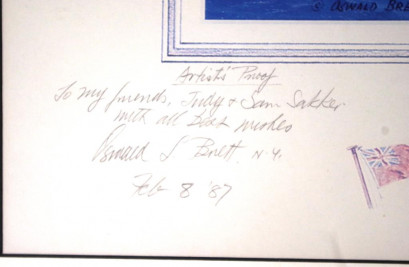 © OSWALD BRE
Artist's Proof
To my friends, Judy + Sam Sakker
with all best wishes
Oswald L Brett N.Y.
Feb 8 '87